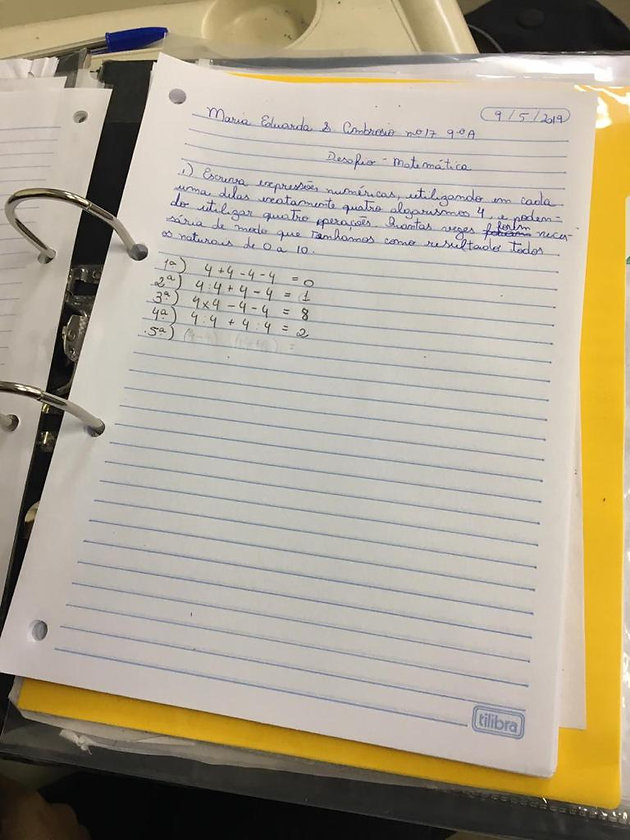 9/5/2019
Maria Eduarda S Ambrosio nº17 9ºA
Desafio - Matemática
1) Escreva expressões numéricas, utilizando em cada
uma delas exatamente quatro algarismos 4, e poden-
do utilizar quatro operações quantas vezes forem neces-
sária de modo que tenhamos como resultado todos
os naturais de 0 a 10.
1ª) 4+4-4-4 = 0
2ª) 4:4+4-4 = 1
3ª) 4x4-4-4 = 8
4ª) 4:4 + 4:4 = 2
5ª) =
tilibra